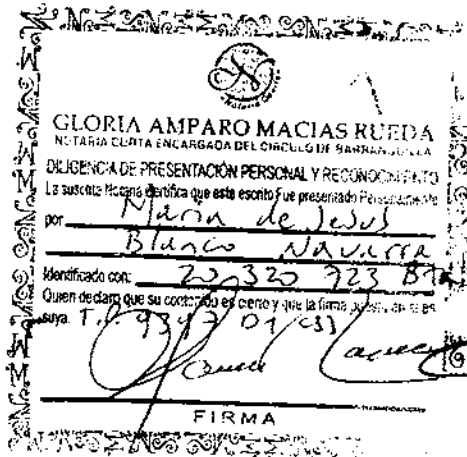 GLORIA AMPARO MACIAS RUEDA
NOTARIA CUARTA ENCARGADA DEL CIRCULO DE BARRANQUILLA
DILIGENCIA DE PRESENTACIÓN PERSONAL Y RECONOCIMIENTO
La suscrita Notaria certifica que este escrito fue presentado Personalmente
por Maria de Jesus
Blanco Navarra
Identificado con: 20 320 723 BTA
Quien declaro que su contenido es cierto y que la firma puesta en el es
suya. T.P. 9347 01 CSJ
FIRMA